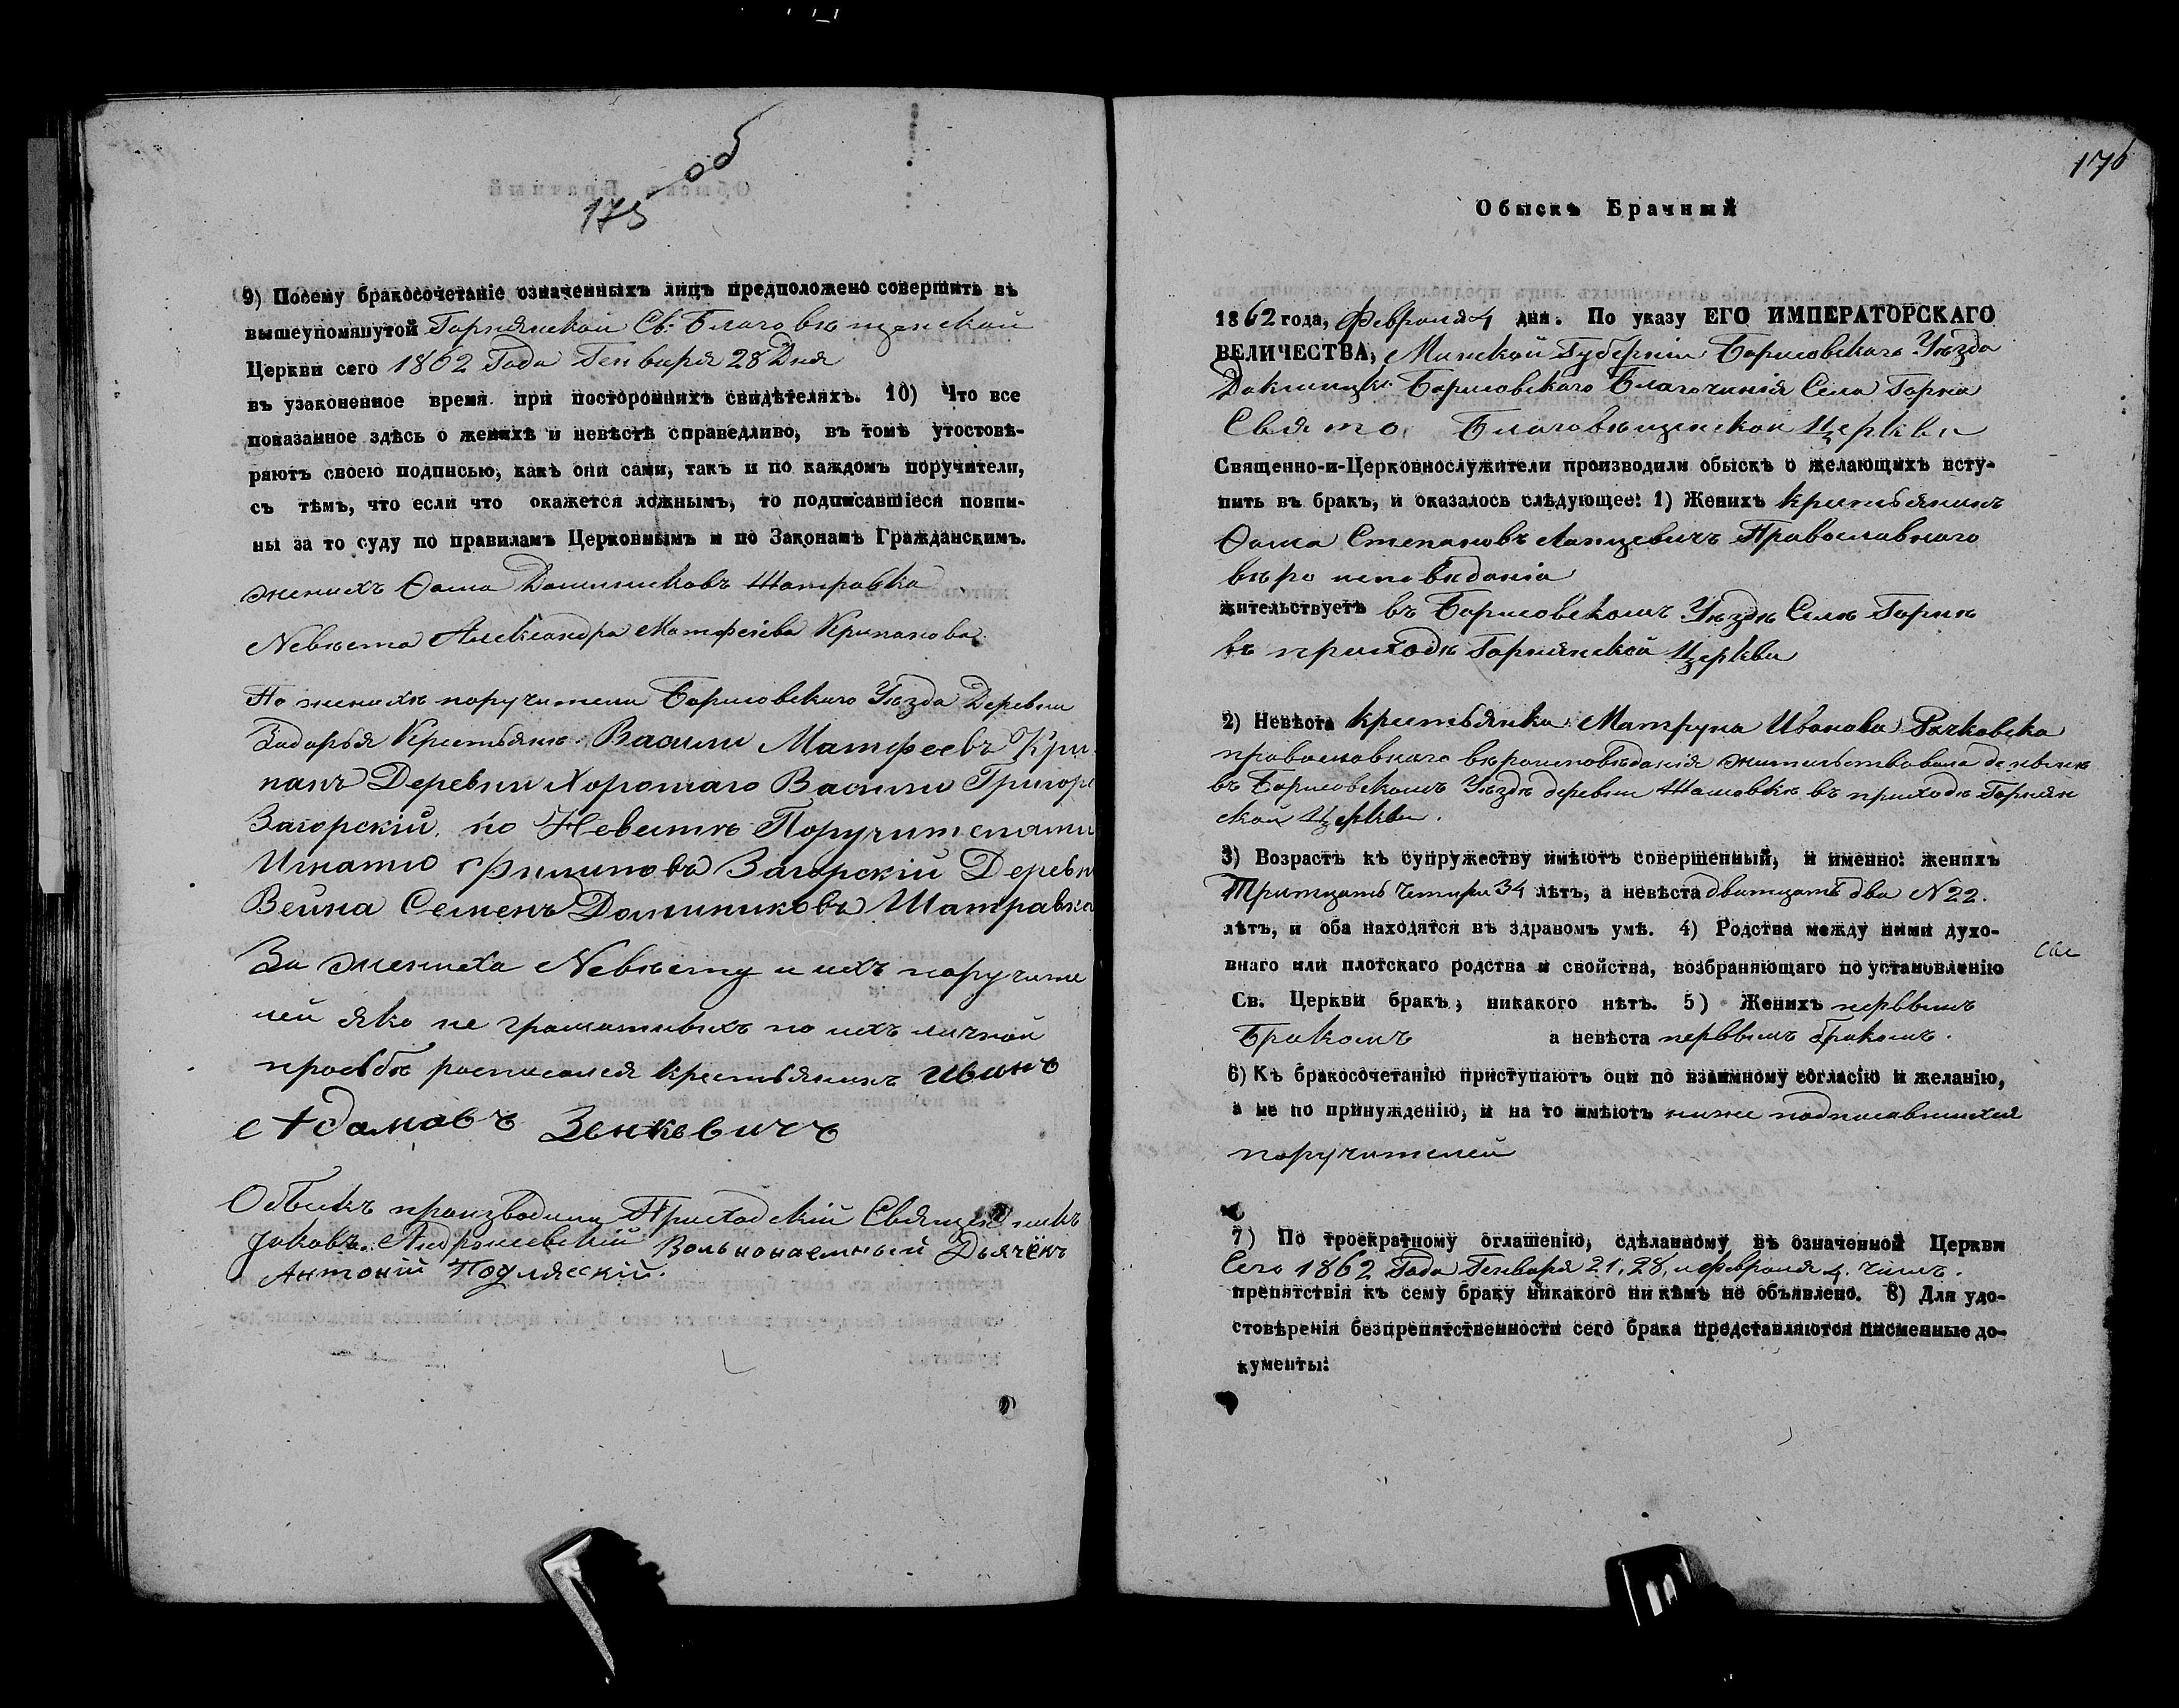 175 об
9) Посему бракосочетаніе означенныхъ лицъ предположено совершить въ
вышеупомянутой Горнянской Св: Благовѣщенской
Церкви сего 1862 Года Генваря 28 Дня
въ узаконенное время при постороннихъ свидѣтеляхъ. 10) Что все
показанное здѣсь о женихѣ и невѣстѣ справедливо, въ томъ утостовѣ-
ряютъ своею подписью, какъ они сами, такъ и по каждомъ поручители,
съ тѣмъ, что если что окажется ложнымъ, то подписавшіеся повин-
ны за то суду по правиламъ Церковнымъ и по Законамъ Гражданскимъ.
женихъ Ѳома Доминиковъ Шатравка
Невѣста Александра Матфеіева Крипанова
По женихѣ поручители Борисовскаго Уѣзда Деревни
Задорья Крестьяне Васили Матфеевъ Кри
панъ Деревни Хорошаго Васили Григорь
Загорскій. по Невестѣ Поручителями
Игнатію Филипова Загорскій Деревн
Вейна Семенъ Доминиковъ Шатравка
За жениха Невѣсту и ихъ поручите
лей яко не грамотныхъ по ихъ личной
прозьбѣ росписался крестьянинъ Иванъ
Адамовъ Зенкевичъ
Обыскъ производили Приходскій Священникъ
Іаковъ Вольнонаемный Дьячёкъ
Антоній Подляскій.
176
Обыскъ Брачный
1862 года, Февраля 4 дня. По указу ЕГО ИМПЕРАТОРСКАГО
ВЕЛИЧЕСТВА, Минской Губерніи Борисовскаго Уѣзда
Докшицк: Борисовскаго Благочинія Села Горна
Свято Благовѣщенской Церкви
Священно-и-Церковнослужители производили обыскъ о желающихъ всту-
пить въ бракъ, и оказалось слѣдующее: 1) Женихъ крестьянинъ
Ѳома Степановъ Лапцевичъ Православнаго
вѣро исповѣданія
жительствуетъ въ Борисовскомъ Уѣздѣ Селѣ Горнѣ
въ приходѣ Горнянской Церкви
2) Невѣста крестьянка Матруна Иванова Рачковска
православнаго вѣроисповѣданія жительствовала донынѣ
въ Борисовскомъ Уѣздѣ деревни Шамовкѣ въ приходѣ Горнян
ской Церкви.
3) Возрастъ къ супружеству имѣютъ совершенный, и именно: женихъ
Тритцать Четыри 34 лѣтъ, а невѣста дватцать два N 22.
лѣтъ, и оба находятся въ здравомъ умѣ. 4) Родства между ними духо-
внаго или плотскаго родства и свойства, возбраняющаго по установленію
Св. Церкви бракъ, никакого нѣтъ. 5) Женихъ перввымъ
Бракомъ а невѣста перввымъ бракомъ.
6) Къ бракосочетанію приступаютъ они по взаимному согласію и желанію,
а не по принужденію, и на то имѣютъ ниже подписавшихся
поручителей
7) По троекратному оглашенію, сдѣланному въ означенной Церкви
Сего 1862 Года Генваря 21, 28, и февраля 4. числъ.
препятствія къ сему браку никакого ни кѣмъ не объявлено. 8) Для удо-
стовѣренія безпрепятственности сего брака представляются писменные до-
кументы: